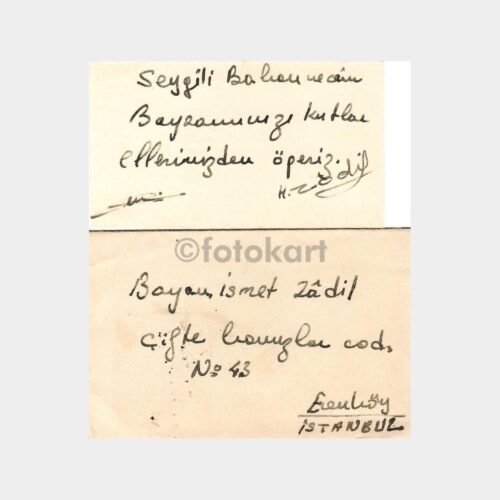 Sevgili Babaanneciğim
Bayramınızı kutlar
ellerinizden öperiz.
H. Zâdil
©fotokart
Bayan ismet zâdil
Çifte havuzlar cad.
No 43
Erenköy
İSTANBUL